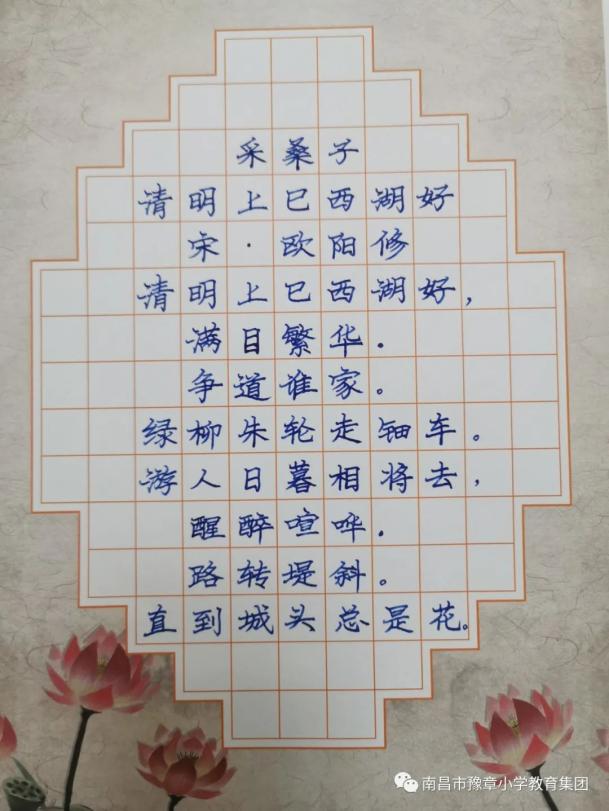 采桑子
清明上巳西湖好
宋·欧阳修
清明上巳西湖好，
满日繁华.
争道谁家。
绿柳朱轮走钿车。
游人日暮相将去，
醒醉喧哗.
路转堤斜。
直到城头总是花。
南昌市豫章小学教育集团